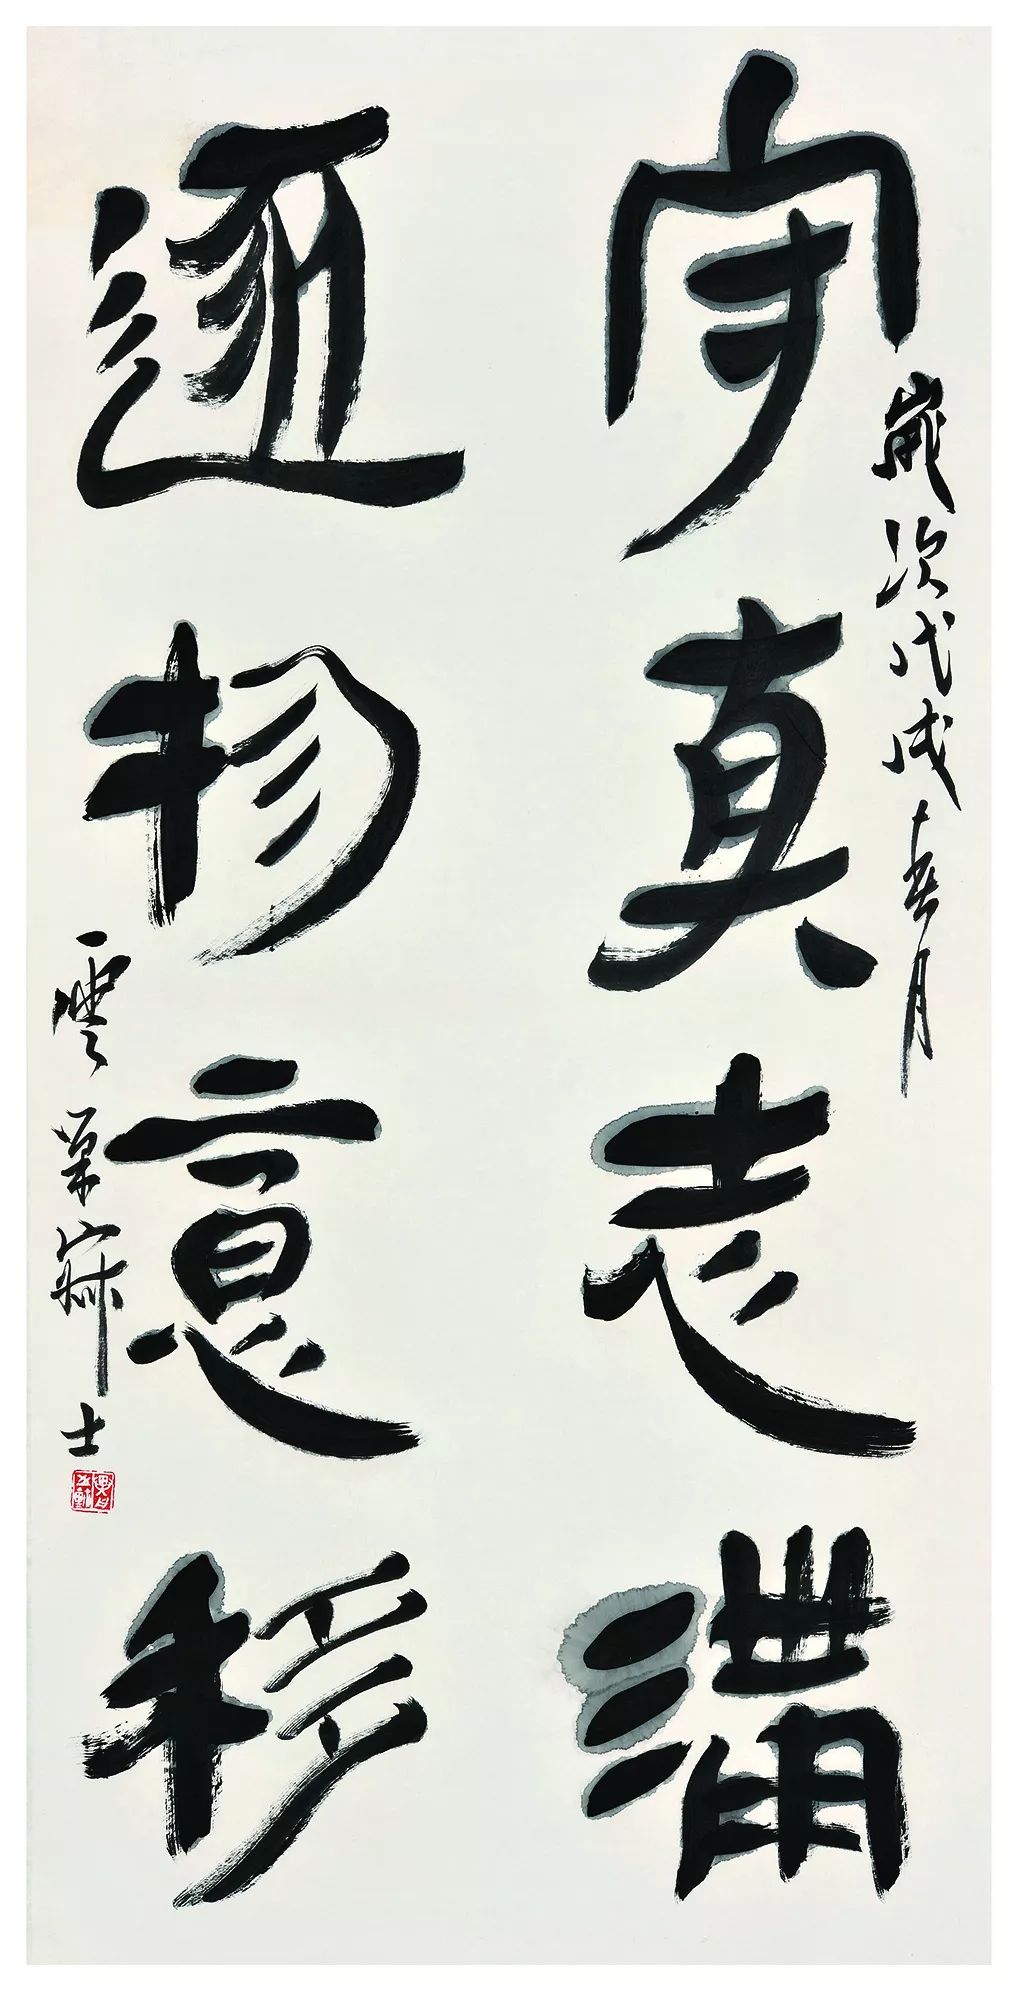 守真志滿
逐物意移
歲次戊戌春月
雲巢寐士